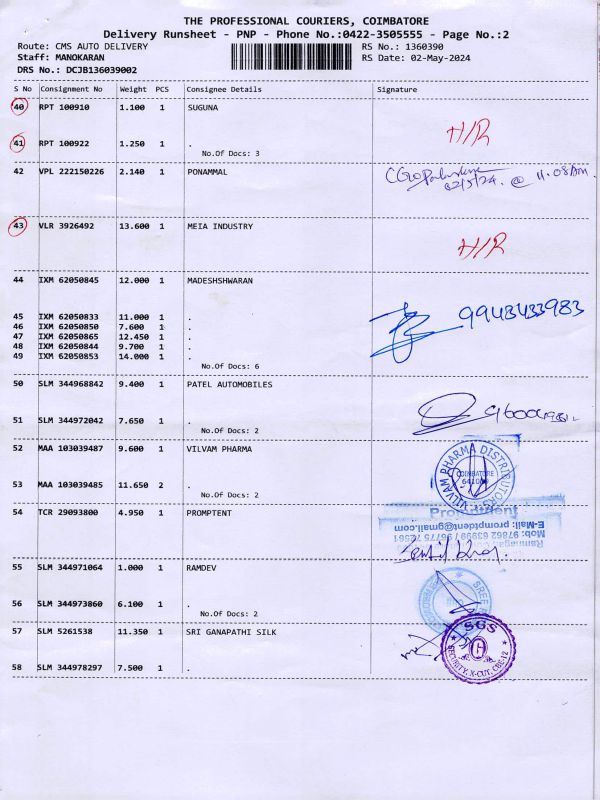 THE PROFESSIONAL COURIERS, COIMBATORE
Delivery Runsheet - PNP - Phone No.:0422-3505555 - Page No.:2
Route: CMS AUTO DELIVERY RS No.: 1360390
Staff: MANOKARAN RS Date: 02-May-2024
DRS No.: DCJB136039002
S No Consignment No Weight PCS Consignee Details Signature
40 RPT 100910 1.100 1 SUGUNA
H/R
41 RPT 100922 1.250 1 .
No.Of Docs: 3
42 VPL 222150226 2.140 1 PONAMMAL
02/5/24. @ 11.08AM.
43 VLR 3926492 13.600 1 MEIA INDUSTRY
H/R
44 IXM 62050845 12.000 1 MADESHSHWARAN
9943433983
45 IXM 62050833 11.000 1 .
46 IXM 62050850 7.600 1 .
47 IXM 62050865 12.450 1 .
48 IXM 62050844 9.700 1 .
49 IXM 62050853 14.000 1 .
No.Of Docs: 6
50 SLM 344968842 9.400 1 PATEL AUTOMOBILES
51 SLM 344972042 7.650 1 .
No.Of Docs: 2
52 MAA 103039487 9.600 1 VILVAM PHARMA
VILVAM PHARMA DISTRIBUTORS
COIMBATORE
53 MAA 103039485 11.650 2 .
No.Of Docs: 2
54 TCR 29093800 4.950 1 PROMPTENT
E-Mail: promptdent@gmail.com
55 SLM 344971064 1.000 1 RAMDEV
56 SLM 344973860 6.100 1 .
No.Of Docs: 2
SREE
57 SLM 5261538 11.350 1 SRI GANAPATHI SILK
SGS
SECURITY, X-CUT, CBE-12
58 SLM 344978297 7.500 1 .